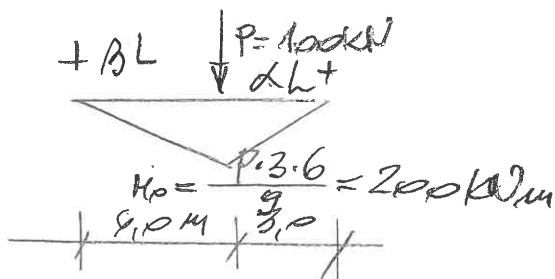 P=100kN
+ βL αL +
M₀ = P·3·6 / 9 = 200 kNm
6,0 m 3,0